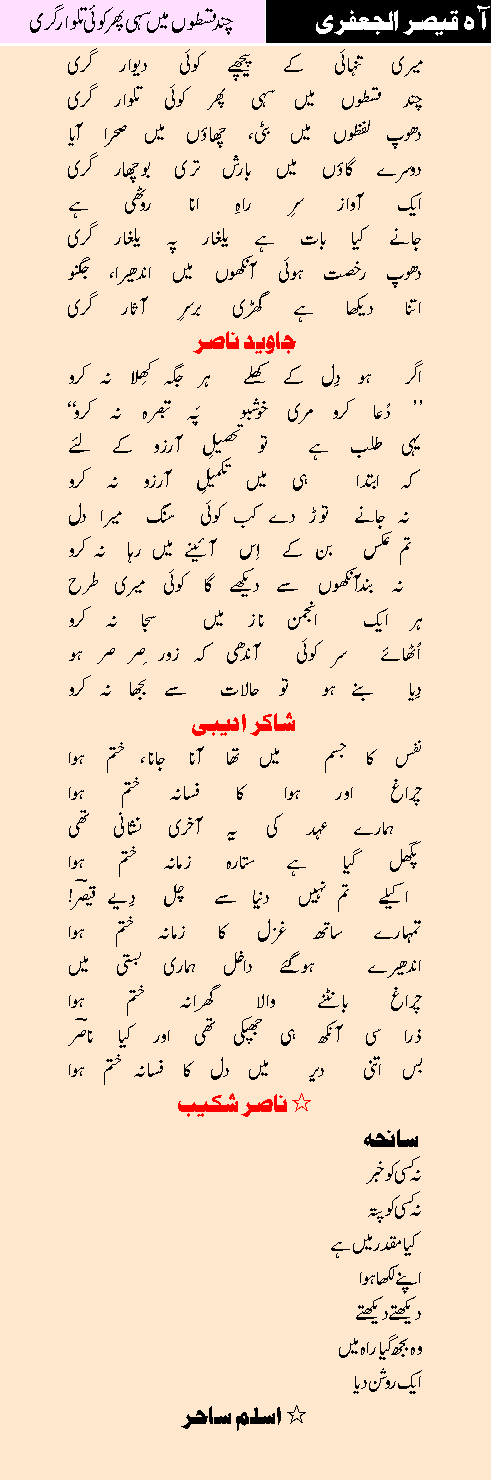 آہ قیصر الجعفری
چند قسطوں میں سہی پھر کوئی تلوار گری
میری تنہائی کے پیچھے کوئی دیوار گری
چند قسطوں میں سہی پھر کوئی تلوار گری
دھوپ لفظوں میں بٹی، چھاؤں میں صحرا آیا
دوسرے گاؤں میں بارش تری بوچھار گری
ایک آواز سرِ راہِ انا روٹھی ہے
جانے کیا بات ہے یلغار پہ یلغار گری
دھوپ رخصت ہوئی آنکھوں میں اندھیرا، جگنو
اتنا دیکھا ہے گھڑی برسرِ آثار گری
جاوید ناصر
اگر ہو دِل کے کھلے ہر جگہ کھِلا نہ کرو
’’ دُعا کرو مری خوشبو پَہ تبصرہ نہ کرو‘‘
یہی طلب ہے تو تحصیلِ آرزو کے لئے
کہ ابتدا ہی میں تکمیلِ آرزو نہ کرو
نہ جانے توڑ دے کب کوئی سنگ میرا دل
تم عکس بن کے اِس آئینے میں رہا نہ کرو
نہ بندآنکھوں سے دیکھے گا کوئی میری طرح
ہر ایک انجمن ناز میں سجا نہ کرو
اُٹھائے سر کوئی آندھی کہ زور صِر صر ہو
دِیا بنے ہو تو حالات سے بجھا نہ کرو
شاکر ادیبی
نفس کا جسم میں تھا آنا جانا، ختم ہوا
چراغ اور ہوا کا فسانہ ختم ہوا
ہمارے عہد کی یہ آخری نشانی تھی
پگھل گیا ہے ستارہ زمانہ ختم ہوا
اکیلے تم نہیں دنیا سے چل دِیے قیصرؔ!
تمہارے ساتھ غزل کا زمانہ ختم ہوا
اندھیرے ہوگئے داخل ہماری بستی میں
چراغ بانٹنے والا گھرانہ ختم ہوا
ذرا سی آنکھ ہی جھپکی تھی اور کیا ناصرؔ
بس اتنی دیر میں دل کا فسانہ ختم ہوا
☆ ناصر شکیب
سانحہ
نہ کسی کو خبر
نہ کسی کو پتہ
کیا مقدر میں ہے
اپنے لکھا ہوا
دیکھتے دیکھتے
وہ بجھ گیا راہ میں
ایک روشن دیا
☆ اسلم ساحر